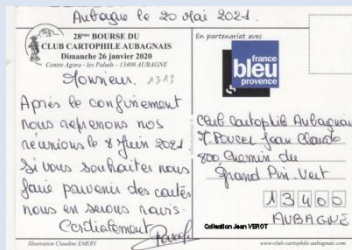 Aubagne le 20 Mai 2021.
28ème BOURSE DU
CLUB CARTOPHILE AUBAGNAIS
Dimanche 26 janvier 2020
Centre Agora - les Paluds - 13400 AUBAGNE
Monsieur. 1313
Après le confinement
nous reprenons nos
réunions le 8 Juin 2021
Si vous souhaitez nous
faire parvenir des cartes
nous en serons ravis.
Cordialement
Illustration Claudine EMERY
En partenariat avec
france
bleu
provence
Club Cartophile Aubagnais
Jean Claude
800 Chemin du
Grand Pin Vert
13400
AUBAGNE
Collection Jean VEROT
www.club-cartophile-aubagnais.com